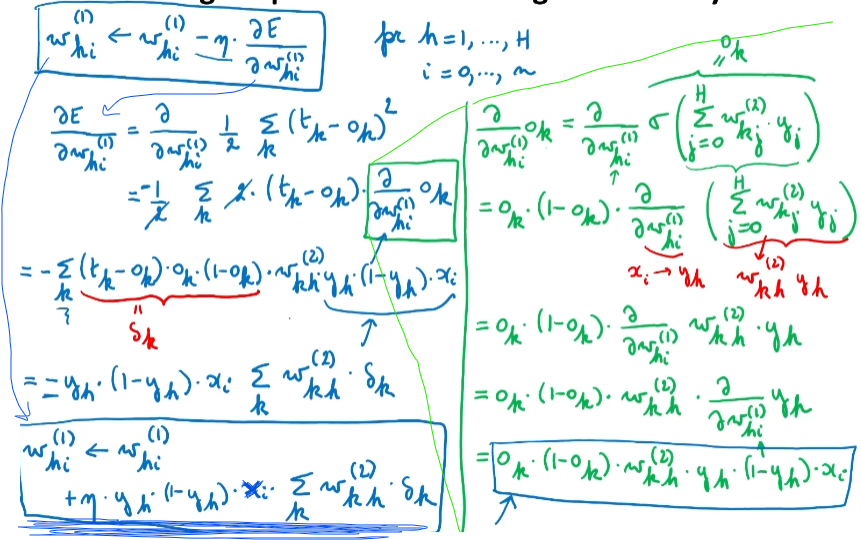 w_{hi}^{(1)} ← w_{hi}^{(1)} − η · ∂E/∂w_{hi}^{(1)}
for h=1, ..., H
i=0, ..., n
∂E/∂w_{hi}^{(1)} = ∂/∂w_{hi}^{(1)} 1/2 Σ_k (t_k − o_k)^2
= −1/2 Σ_k 2 · (t_k − o_k) · ∂/∂w_{hi}^{(1)} o_k
= − Σ_k (t_k − o_k) · o_k · (1 − o_k) · w_{kh}^{(2)} · y_h · (1 − y_h) · x_i
= δ_k
= − y_h · (1 − y_h) · x_i Σ_k w_{kh}^{(2)} · δ_k
w_{hi}^{(1)} ← w_{hi}^{(1)}
+ η · y_h · (1 − y_h) · x_i · Σ_k w_{kh}^{(2)} · δ_k
= o_k
∂/∂w_{hi}^{(1)} o_k = ∂/∂w_{hi}^{(1)} σ ( Σ_{j=0}^{H} w_{kj}^{(2)} · y_j )
= o_k · (1 − o_k) · ∂/∂w_{hi}^{(1)} ( Σ_{j=0}^{H} w_{kj}^{(2)} y_j )
x_i → y_h
w_{kh}^{(2)} y_h
= o_k · (1 − o_k) · ∂/∂w_{hi}^{(1)} w_{kh}^{(2)} · y_h
= o_k · (1 − o_k) · w_{kh}^{(2)} · ∂/∂w_{hi}^{(1)} y_h
= o_k · (1 − o_k) · w_{kh}^{(2)} · y_h · (1 − y_h) · x_i